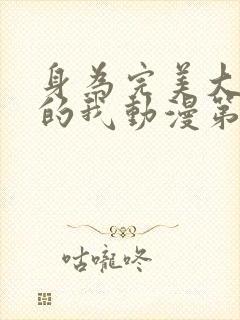 身為完美大
的我動漫第
咕嚨咚